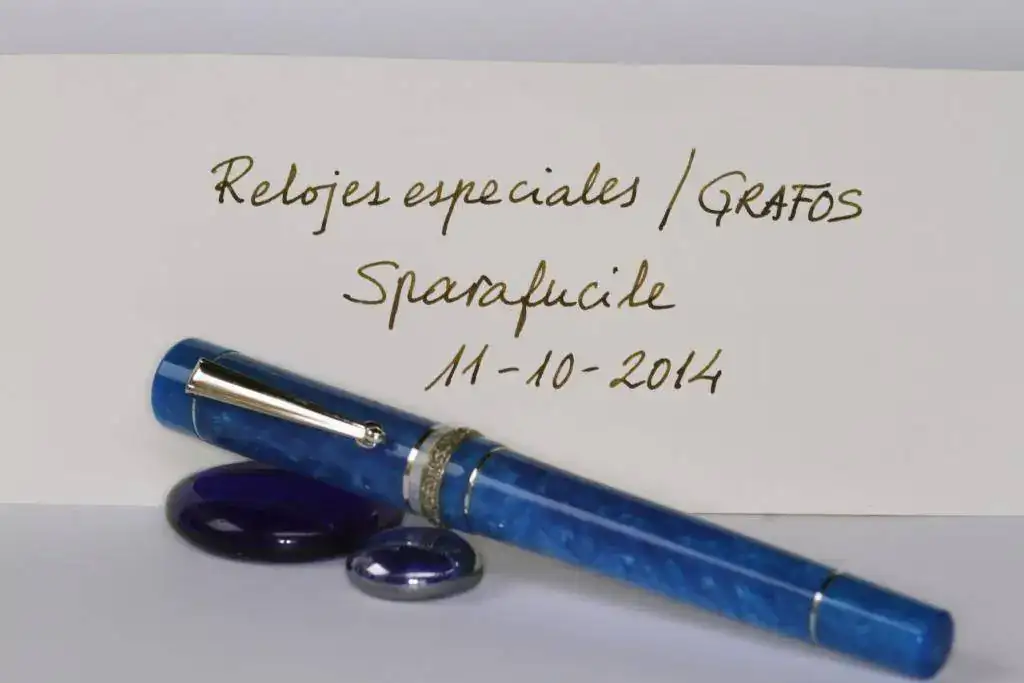 Relojes especiales / GRAFOS
Sparafucile
11-10-2014